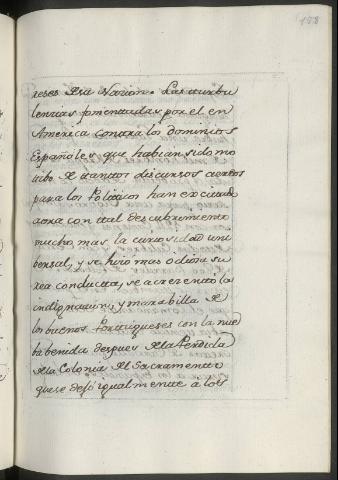 158
reses Esa Nacion. Las turbu
lencias fomentadas por el en
America contra los dominios
Españoles, que habian sido mo
tibo de tantos discursos
para los Politicos han excitado
aora con tal descubrimiento
mucho mas la curiosidad uni
bersal, y se hizo mas odiosa su
rea conducta, se acrecentó la
indignacion, y marabilla de
los buenos Portugueses con la nue
ba benida despues de la Perdida
de la Colonia del Sacramento
que se dejó igualmente a los